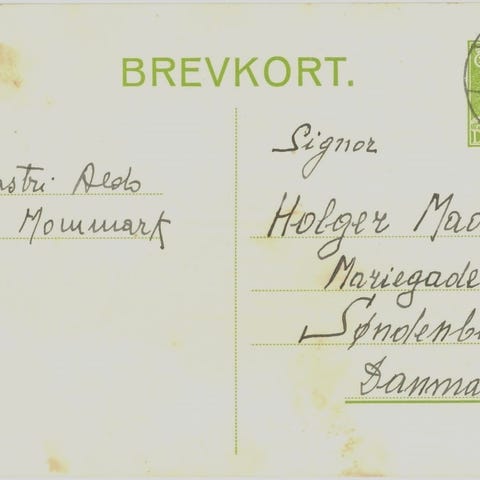 BREVKORT.
stri Aldo
Mommark
Signor
Holger Mad
Mariegade
Søndenb
Danma